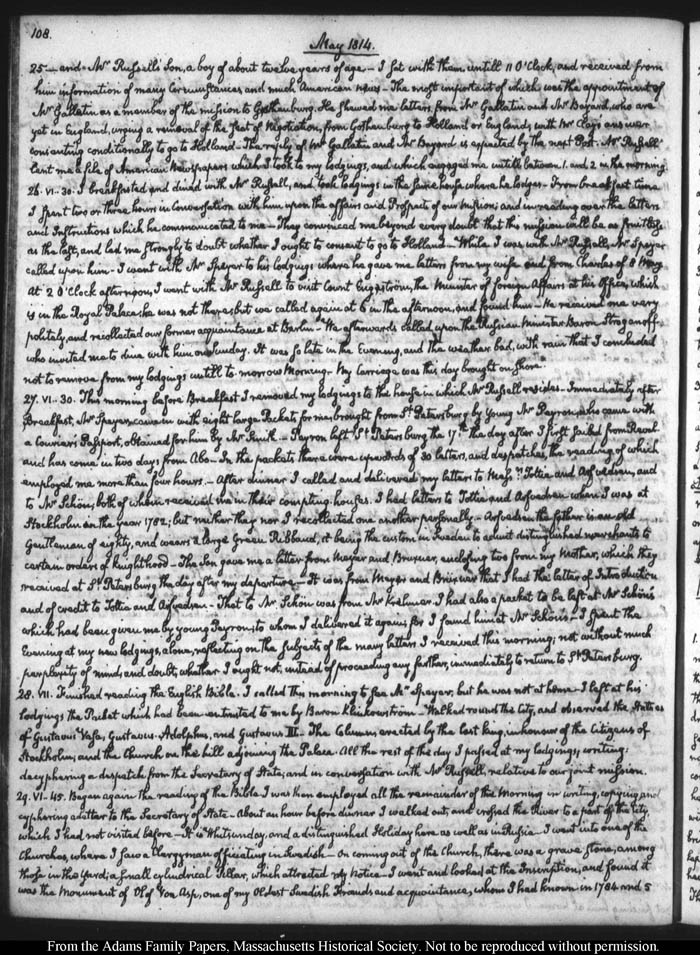 108.
May 1814.
25— and Mr Russell's Son, a boy of about twelve years of age.— I sat with them untill 11 O'Clock, and received from
him information of many Circumstances and much American news— The most important of which was the appointment of
Mr Gallatin as a member of the mission to Gothenburg. He shewed me letters from Mr Gallatin and Mr Bayard, who are
yet in England, urging a removal of the seat of Negotiation, from Gothenburg to Holland or England; with Mr Clay's answer
consenting conditionally to go to Holland— The reply of Mr Gallatin and Mr Bayard is expected by the next Post. Mr Russell
lent me a file of American Newspapers which I took to my lodgings, and which engaged me untill between 1. and 2 in the morning.
26. VI.-30. I breakfasted and dined with Mr Russell, and took lodgings in the same house where he lodges.— From breakfast time
I spent two or three hours in Conversation with him upon the affairs and Prospects of our mission; and in reading over the letters
and Instructions which he communicated to me— They convinced me beyond every doubt that this mission will be as fruitless
as the last, and led me strongly to doubt whether I ought to consent to go to Holland— While I was with Mr Russell, Mr Speyer
called upon him— I went with Mr Speyer to his lodgings where he gave me letters from my wife and from Charles of 8 May.
At 2 O'Clock afternoon, I went with Mr Russell to visit Count Engeström, the Minister of foreign Affairs at his Office, which
is in the Royal Palace. he was not there; but we called again at 6 in the afternoon, and found him— He received me very
politely, and recollected our former acquaintance at Berlin— We afterwards called upon the Russian Minister Baron Stroganoff
who invited me to dine with him on Sunday. It was so late in the Evening, and the weather bad, with rain that I concluded
not to remove from my lodgings untill to-morrow Morning. My Carriage was this day brought on shore.
27. VI.-30. This morning before Breakfast I removed my lodgings to the house in which Mr Russell resides— Immediately after
Breakfast, Mr Speyer came in with eight large Packets for me, brought from St Petersburg by Young Mr Peyron, who came with
a Courier's Passport, obtained for him by Mr Smith— Peyron left St Petersburg the 17th. the day after I first sailed from Reval
and has come in two days from Abo— In the packets there were upwards of 30 letters, and despatches, the reading of which
employed me more than four hours.— After dinner I called and delivered my letters to Messrs Tottie and Arfvedson, and
to Mr Schön; both of whom received me in their compting-houses. I had letters to Tottie and Arfvedson when I was at
Stockholm in the year 1782; but neither they nor I recollected one another personally— Arfvedson the father is an old
Gentleman of eighty, and wears a large Green Ribband, it being the custom in Sweden to admit distinguished merchants to
certain orders of knighthood— The Son gave me a letter from Meyer and Bruxner, enclosing two from my Mother, which they
received at St Petersburg the day after my departure.— It was from Meyer and Bruxner that I had the letter of Introduction
and of credit to Tottie and Arfvedson— That to Mr Schön was from Mr Krehmer. I had also a packet to be left at Mr Schön's
which had been given me by young Peyron; to whom I delivered it again; for I found him at Mr Schön's— I spent the
Evening at my new lodgings, alone, reflecting on the subjects of the many letters I received this morning; not without much
perplexity of mind, and doubt, whether I ought not, instead of proceeding any further, immediately to return to St Petersburg.
28. VII. Finished reading the English Bible. I called this morning to see Mr Speyer; but he was not at home— I left at his
lodgings the Packet which had been entrusted to me by Baron Klinkowström— Walked round the City, and observed the Statues
of Gustavus Vasa, Gustavus-Adolphus, and Gustavus III.— The Column erected by the last king, in honour of the Citizens of
Stockholm; and the Church on the hill adjoining the Palace. All the rest of the day I passed at my lodgings, writing;
decyphering a despatch from the Secretary of State; and in conversation with Mr Russell, relative to our joint mission.
29. VI.-45. Began again the reading of the Bible. I was then employed all the remainder of the Morning in writing, copying and
cyphering a letter to the Secretary of State— About an hour before dinner I walked out, and crossed the River to a part of the City
which I had not visited before— It is Whitsunday, and a distinguished Holiday here as well as in Russia— I went into one of the
Churches, where I saw a Clergyman officiating in Swedish— On coming out of the Church, there was a grave stone, among
those in the yard; a small cylindrical Pillar, which attracted my Notice— I went and looked at the Inscription, and found it
was the Monument of Olof Von Asp, one of my Oldest Swedish Friends and acquaintance, whom I had known in 1784 and 5
From the Adams Family Papers, Massachusetts Historical Society. Not to be reproduced without permission.